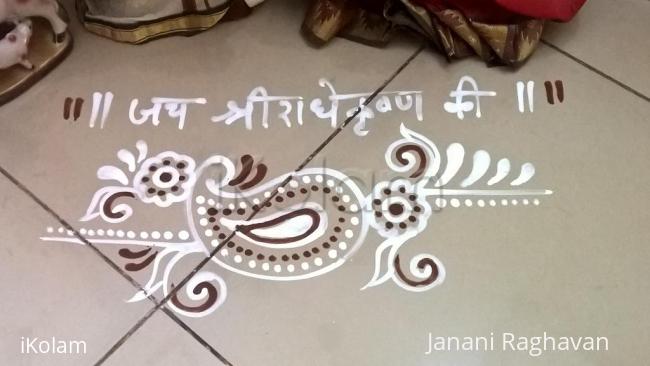 "॥ जय श्री राधेकृष्ण की ॥"
iKolam
iKolam
Janani Raghavan